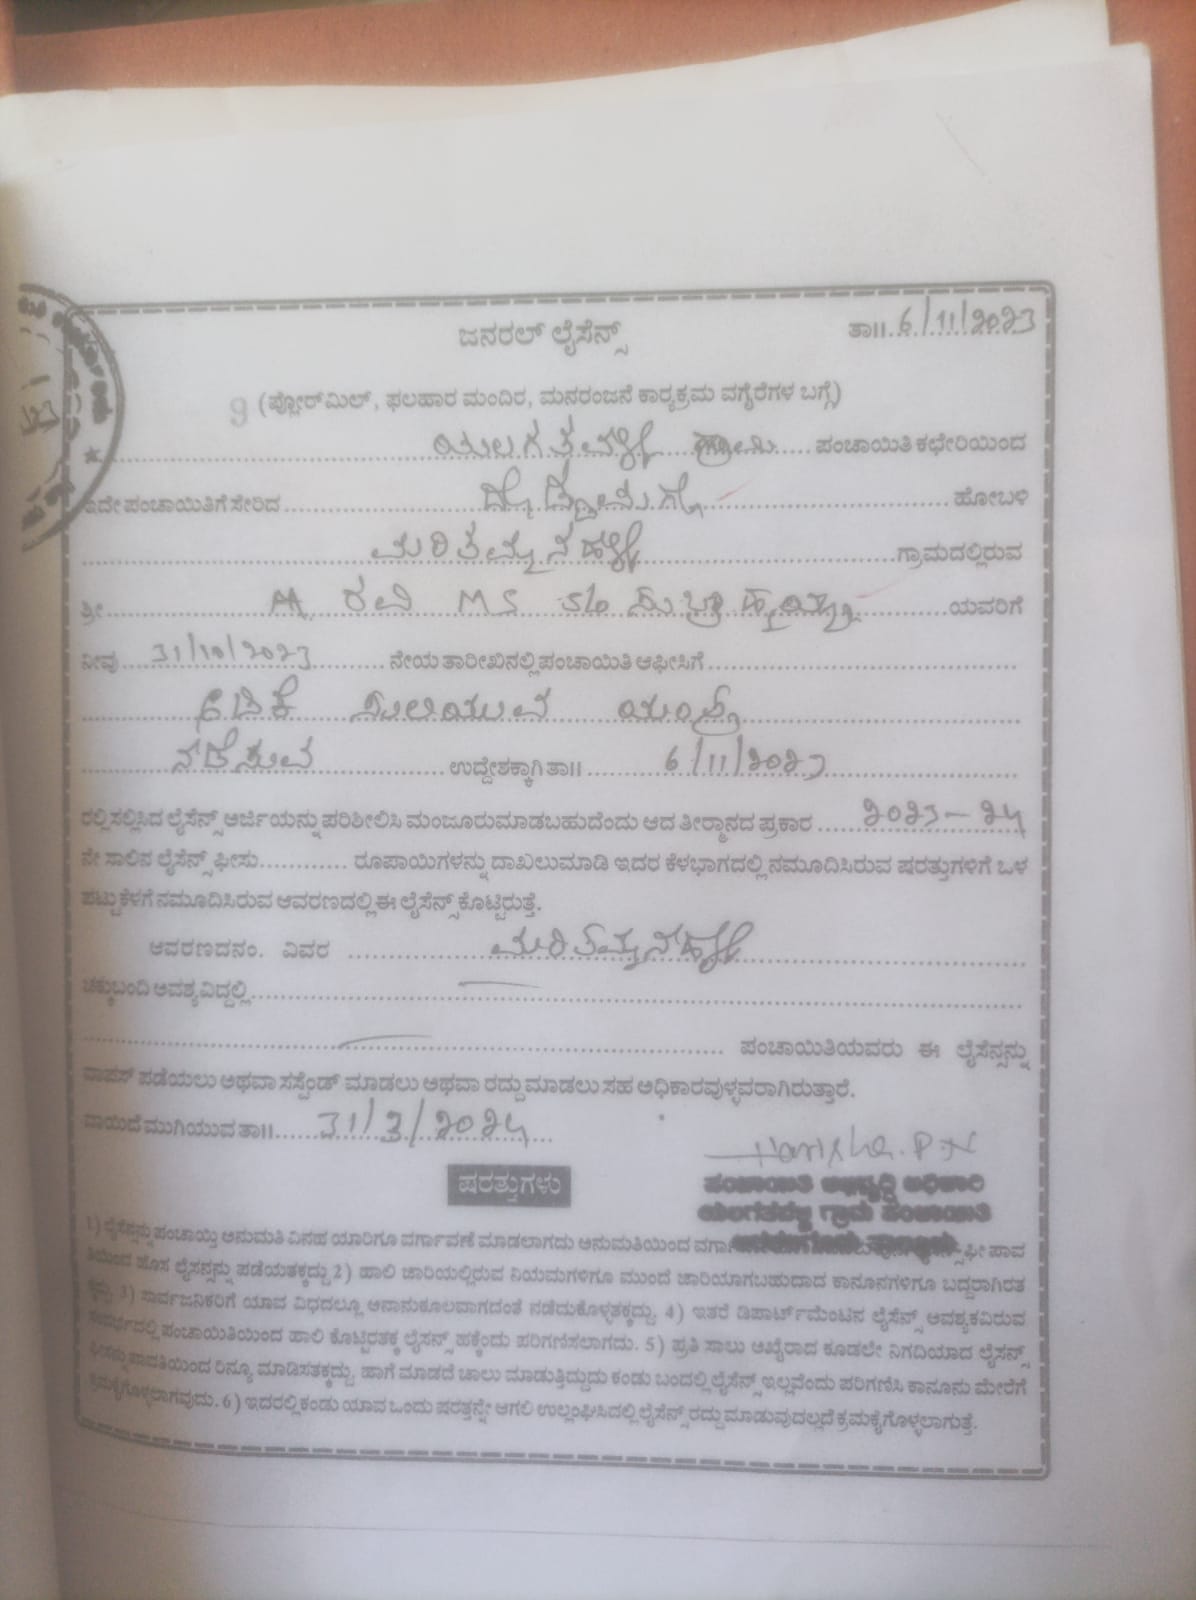 ಜನರಲ್ ಲೈಸೆನ್ಸ್
ತಾ॥ 6/11/2023
9 (ಪ್ಲೋರ್‌ಮಿಲ್, ಫಲಹಾರ ಮಂದಿರ, ಮನರಂಜನೆ ಕಾರ್‍ಯಕ್ರಮ ವಗೈರೆಗಳ ಬಗ್ಗೆ)
ಯಲಗತವಳ್ಳಿ ಗ್ರಾಮ ಪಂಚಾಯಿತಿ ಕಛೇರಿಯಿಂದ
ಇದೇ ಪಂಚಾಯಿತಿಗೆ ಸೇರಿದ ಹೋಬಳಿ
ಮರಿತಮ್ಮನಹಳ್ಳಿ ಗ್ರಾಮದಲ್ಲಿರುವ
ಶ್ರೀ ರವಿ MS S/o ಸುಬ್ರಾಹ್ಮಯ್ಯ ಯವರಿಗೆ
ನೀವು 31/10/2023 ನೇಯ ತಾರೀಖಿನಲ್ಲಿ ಪಂಚಾಯಿತಿ ಆಫೀಸಿಗೆ
ಅಡಿಕೆ ಸುಲಿಯುವ ಯಂತ್ರ
ನಡೆಸುವ ಉದ್ದೇಶಕ್ಕಾಗಿ ತಾ॥ 6/11/2023
ರಲ್ಲಿ ಸಲ್ಲಿಸಿದ ಲೈಸೆನ್ಸ್ ಅರ್ಜಿಯನ್ನು ಪರಿಶೀಲಿಸಿ ಮಂಜೂರು ಮಾಡಬಹುದೆಂದು ಆದ ತೀರ್ಮಾನದ ಪ್ರಕಾರ 2023-24
ನೇ ಸಾಲಿನ ಲೈಸೆನ್ಸ್ ಫೀಸು ರೂಪಾಯಿಗಳನ್ನು ದಾಖಲುಮಾಡಿ ಇದರ ಕೆಳಭಾಗದಲ್ಲಿ ನಮೂದಿಸಿರುವ ಷರತ್ತುಗಳಿಗೆ ಒಳ
ಪಟ್ಟು ಕೆಳಗೆ ನಮೂದಿಸಿರುವ ಆವರಣದಲ್ಲಿ ಈ ಲೈಸೆನ್ಸ್ ಕೊಟ್ಟಿರುತ್ತೆ.
ಆವರಣದ ನಂ. ವಿವರ ಮರಿತಮ್ಮನಹಳ್ಳಿ
ಚಕ್ಕುಬಂದಿ ಅವಶ್ಯವಿದ್ದಲ್ಲಿ
ಪಂಚಾಯಿತಿಯವರು ಈ ಲೈಸೆನ್ಸನ್ನು
ವಾಪಸ್ ಪಡೆಯಲು ಅಥವಾ ಸಸ್ಪೆಂಡ್ ಮಾಡಲು ಅಥವಾ ರದ್ದು ಮಾಡಲು ಸಹ ಅಧಿಕಾರವುಳ್ಳವರಾಗಿರುತ್ತಾರೆ.
ವಾಯಿದೆ ಮುಗಿಯುವ ತಾ॥ 31/3/2024
Harisha.P.N
ಪಂಚಾಯಿತಿ ಅಭಿವೃದ್ಧಿ ಅಧಿಕಾರಿ
ಗ್ರಾಮ ಪಂಚಾಯಿತಿ
ಷರತ್ತುಗಳು
1) ಲೈಸೆನ್ಸನ್ನು ಪಂಚಾಯ್ತಿ ಅನುಮತಿ ವಿನಹ ಯಾರಿಗೂ ವರ್ಗಾವಣೆ ಮಾಡಲಾಗದು ಅನುಮತಿಯಿಂದ ಫೀ ಪಾವ
ತಿಯಿಂದ ಹೊಸ ಲೈಸನ್ಸನ್ನು ಪಡೆಯತಕ್ಕದ್ದು 2) ಹಾಲಿ ಜಾರಿಯಲ್ಲಿರುವ ನಿಯಮಗಳಿಗೂ ಮುಂದೆ ಜಾರಿಯಾಗಬಹುದಾದ ಕಾನೂನಗಳಿಗೂ ಬದ್ದರಾಗಿರತ
ಕ್ಕದ್ದು. 3) ಸಾರ್ವಜನಿಕರಿಗೆ ಯಾವ ವಿಧದಲ್ಲೂ ಅನಾನುಕೂಲವಾಗದಂತೆ ನಡೆದುಕೊಳ್ಳತಕ್ಕದ್ದು. 4) ಇತರೆ ಡಿಪಾರ್ಟ್‌ಮೆಂಟಿನ ಲೈಸೆನ್ಸ್ ಅವಶ್ಯಕವಿರುವ
ಸಂದರ್ಭದಲ್ಲಿ ಪಂಚಾಯಿತಿಯಿಂದ ಹಾಲಿ ಕೊಟ್ಟಿರತಕ್ಕ ಲೈಸನ್ಸ್ ಹಕ್ಕೆಂದು ಪರಿಗಣಿಸಲಾಗದು. 5) ಪ್ರತಿ ಸಾಲು ಆಖೈರಾದ ಕೂಡಲೇ ನಿಗದಿಯಾದ ಲೈಸನ್ಸ್
ಫೀಸನ್ನು ಪಾವತಿಯಿಂದ ರಿನ್ಯೂ ಮಾಡಿಸತಕ್ಕದ್ದು. ಹಾಗೆ ಮಾಡದೆ ಚಾಲು ಮಾಡುತ್ತಿದ್ದುದು ಕಂಡು ಬಂದಲ್ಲಿ ಲೈಸೆನ್ಸ್ ಇಲ್ಲವೆಂದು ಪರಿಗಣಿಸಿ ಕಾನೂನು ಮೇರೆಗೆ
ಕ್ರಮಕೈಗೊಳ್ಳಲಾಗವುದು. 6) ಇದರಲ್ಲಿ ಕಂಡು ಯಾವ ಒಂದು ಷರತ್ತನ್ನೇ ಆಗಲಿ ಉಲ್ಲಂಘಿಸಿದಲ್ಲಿ ಲೈಸೆನ್ಸ್ ರದ್ದು ಮಾಡುವುದಲ್ಲದೆ ಕ್ರಮಕೈಗೊಳ್ಳಲಾಗುತ್ತೆ.